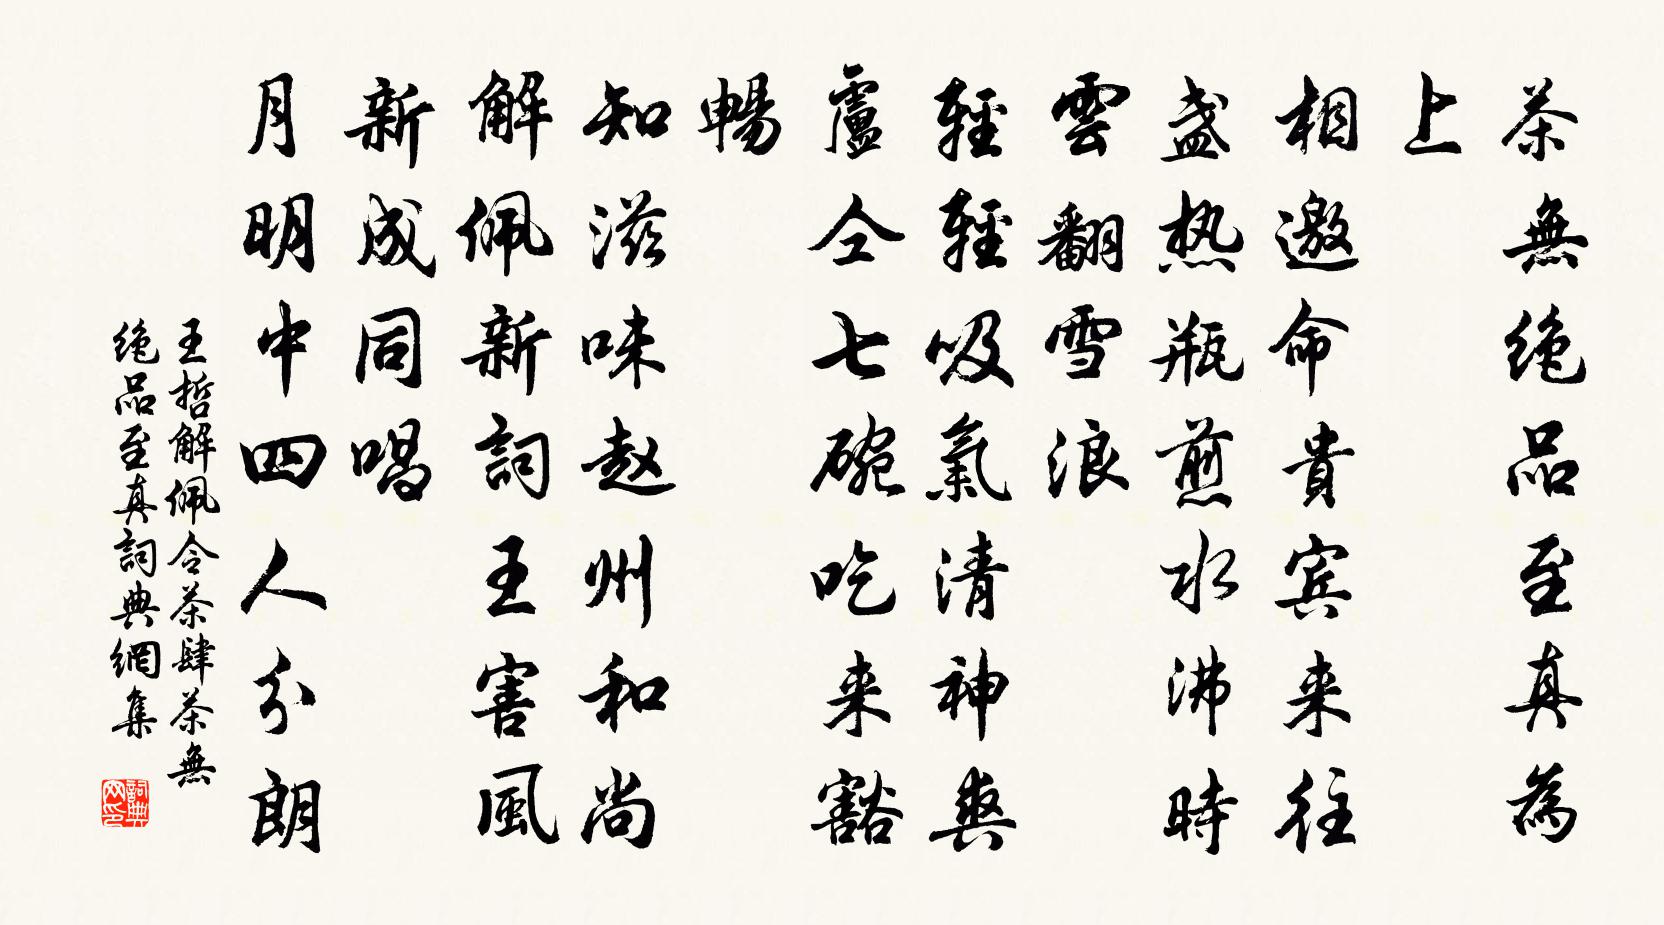 茶無绝品至真為
上
相邀命貴宾来往
盏热瓶煎水沸時
雲翻雪浪
輕輕吸氣清神爽
盧仝七碗吃来豁
暢
知滋味赵州和尚
解佩新詞王害風
新成同唱
月明中四人分朗
王哲解佩令茶肆茶無
绝品至真詞典網集
詞典
网印